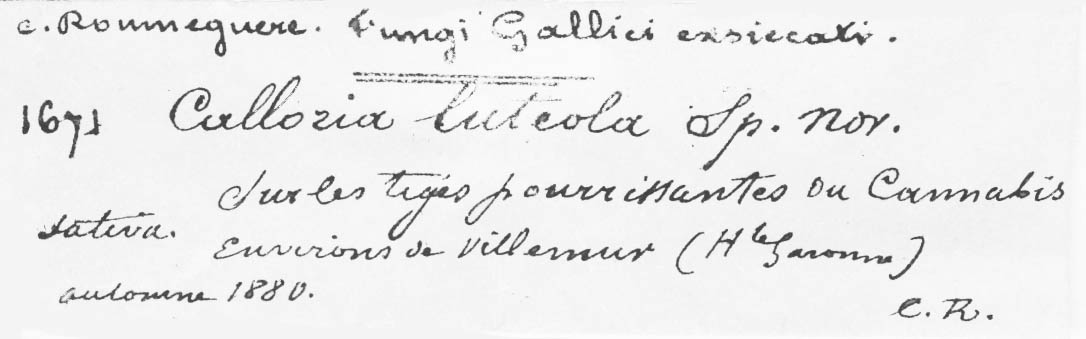 C. Roumeguere. Fungi Gallici exsiccati.
1671 Calloria luteola Sp. nov.
Sur les tiges pourrissantes du Cannabis
sativa. Environs de Villemur (Hte Garonne)
automne 1880. C. R.